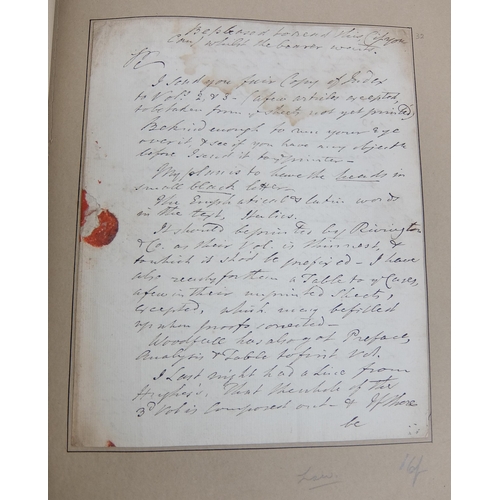 Be pleased to send this Copy
Can, whilst the bearer waits.
Sr
I send you fair Copy of Index
to Vols. 2, & 3 - (a few articles excepted,
to be taken from ye sheets not yet printed)
Be kind enough to run your Eye
over it, & see if you have any objectn
before I send it to ye printer -
My plan is to have the heads in
small black letter
The English a Vicar's Latin words
in the text, Italics.
It should be printed by Rivington
& Co. as their Vol. is thinnest, &
to which it shod be prefixed - I have
also ready for them a Table to ye Cases,
a few in their unprinted Sheets,
excepted, which may be filled
up when proofs corrected -
Woodfall has also got Preface,
Analysis & Table to first Vol.
I last night had a Line from
Hughes's, That the whole of the
3d Vol is Composed out - & If there
be
16/
Law.